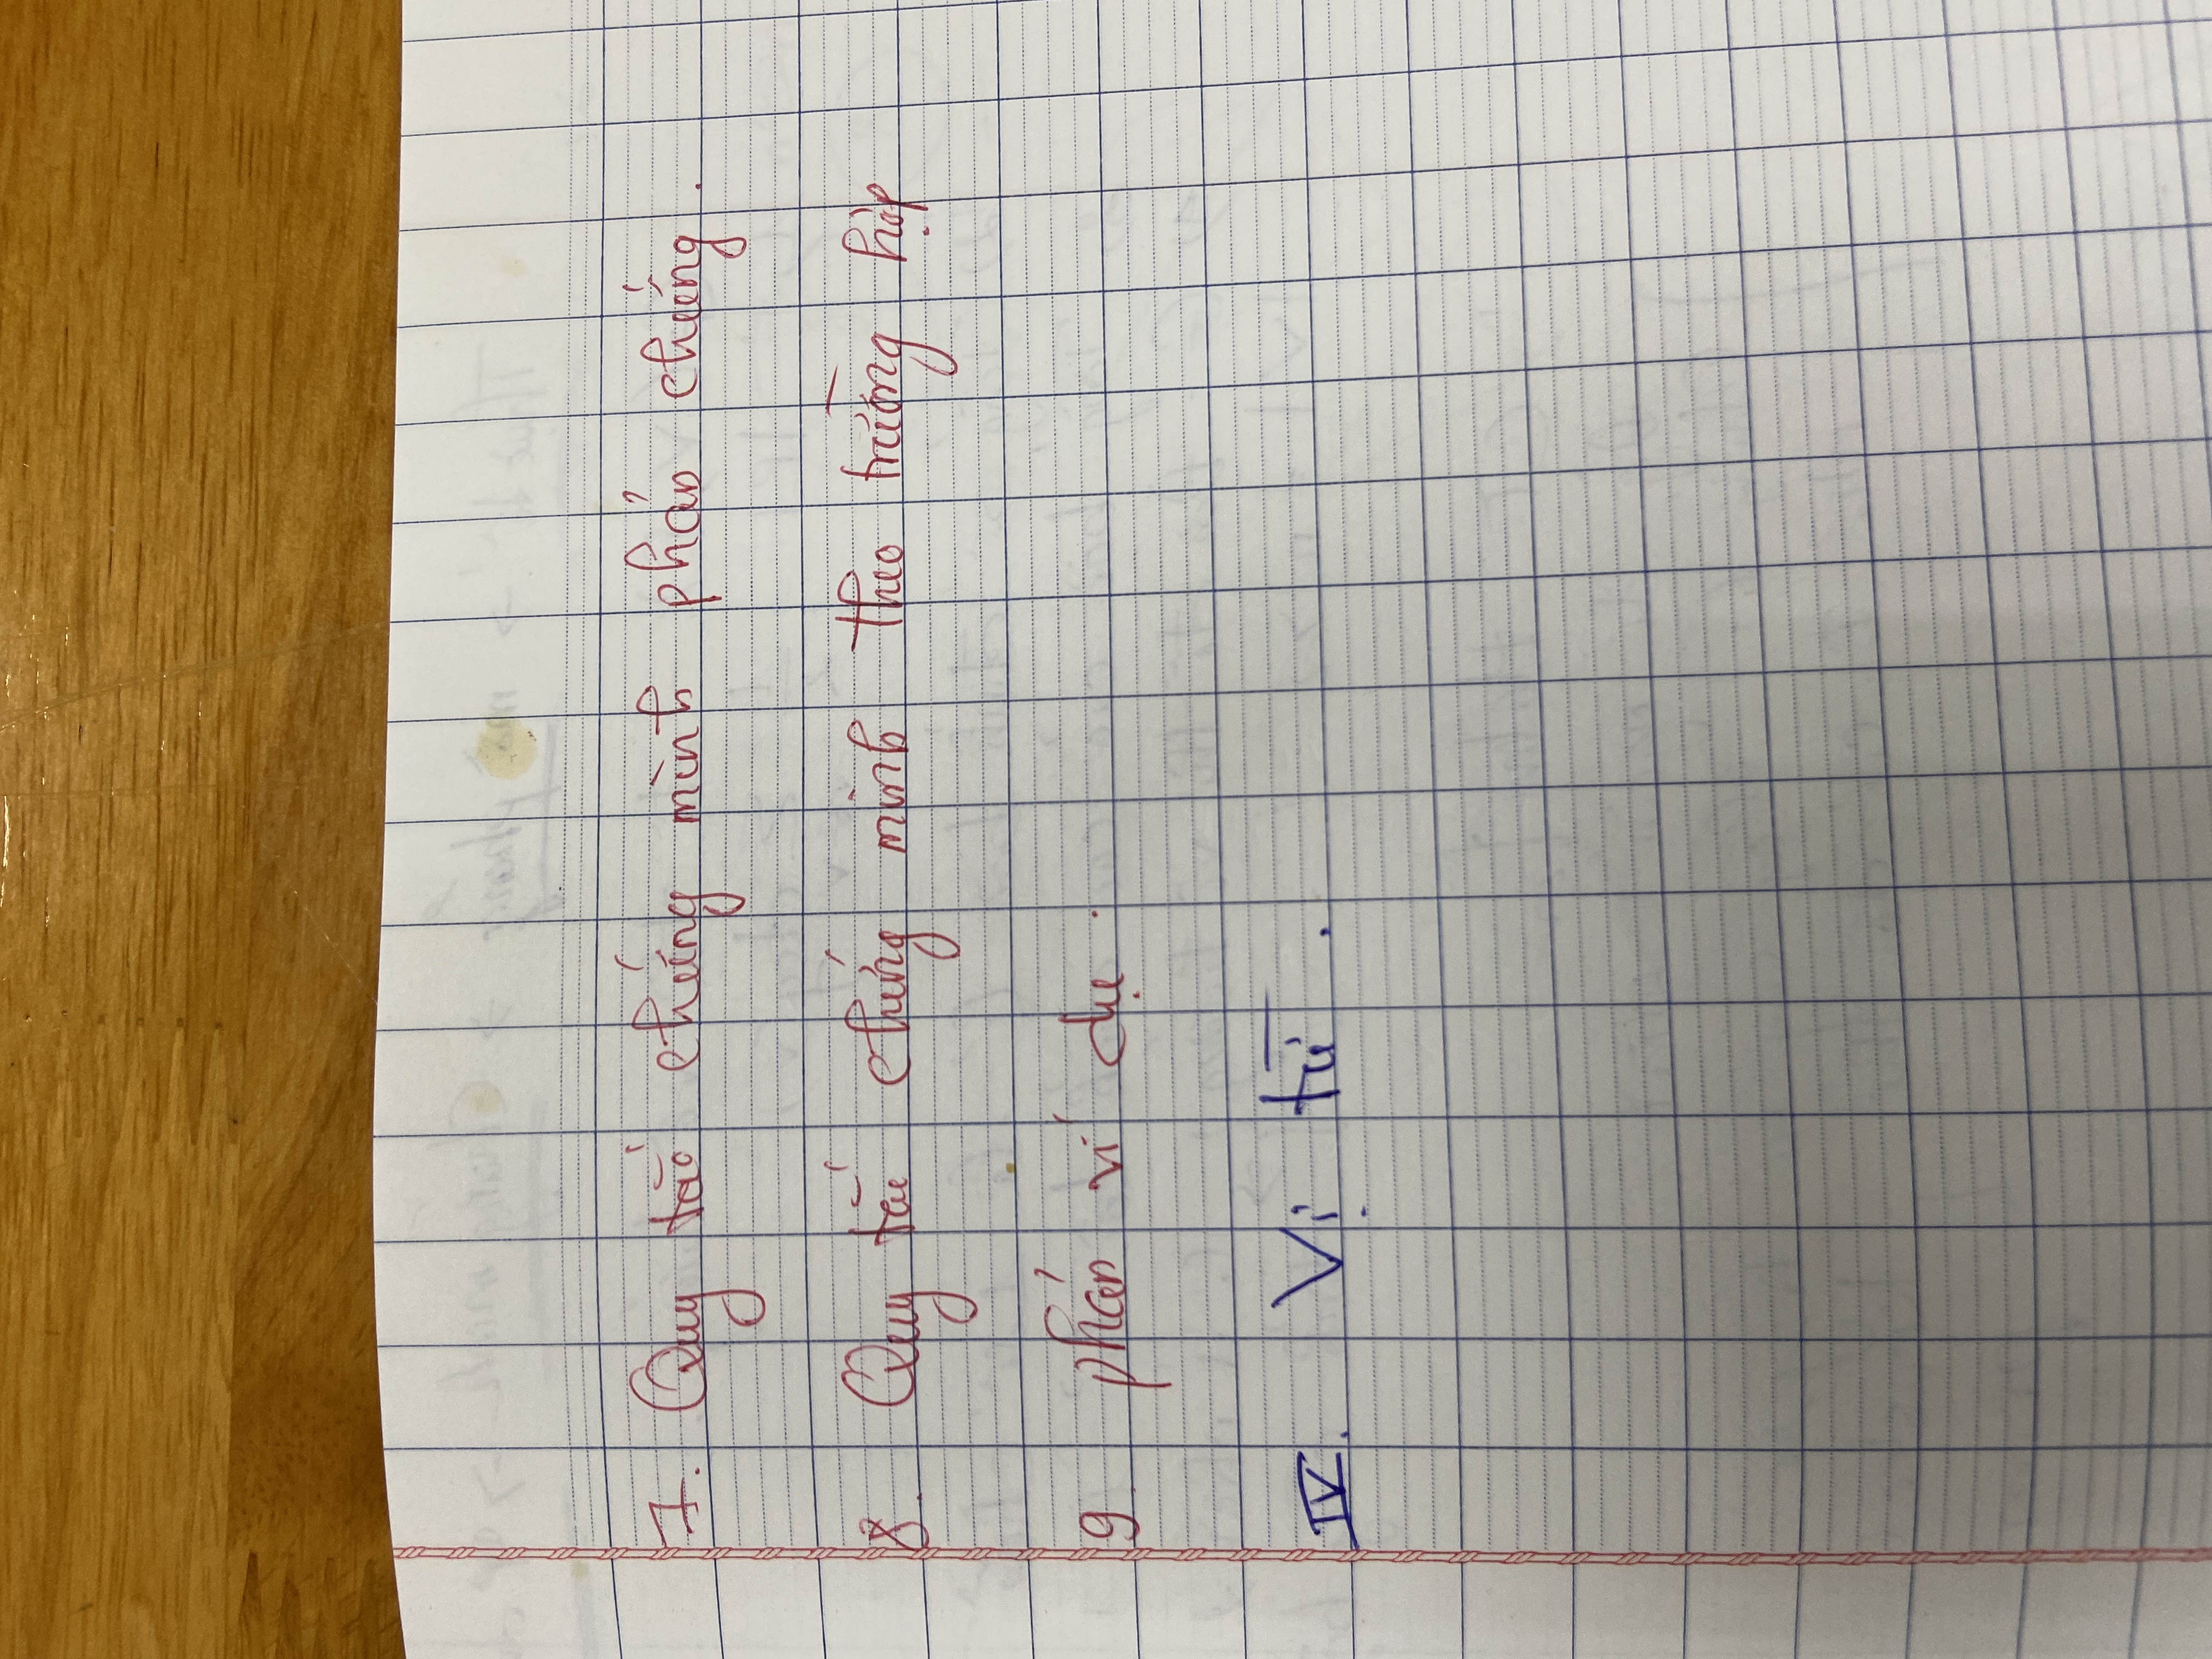 7. Quy tắc chứng minh phản chứng.
8. Quy tắc chứng minh theo trường hợp
9. phản ví dụ.
IV. Vị từ.